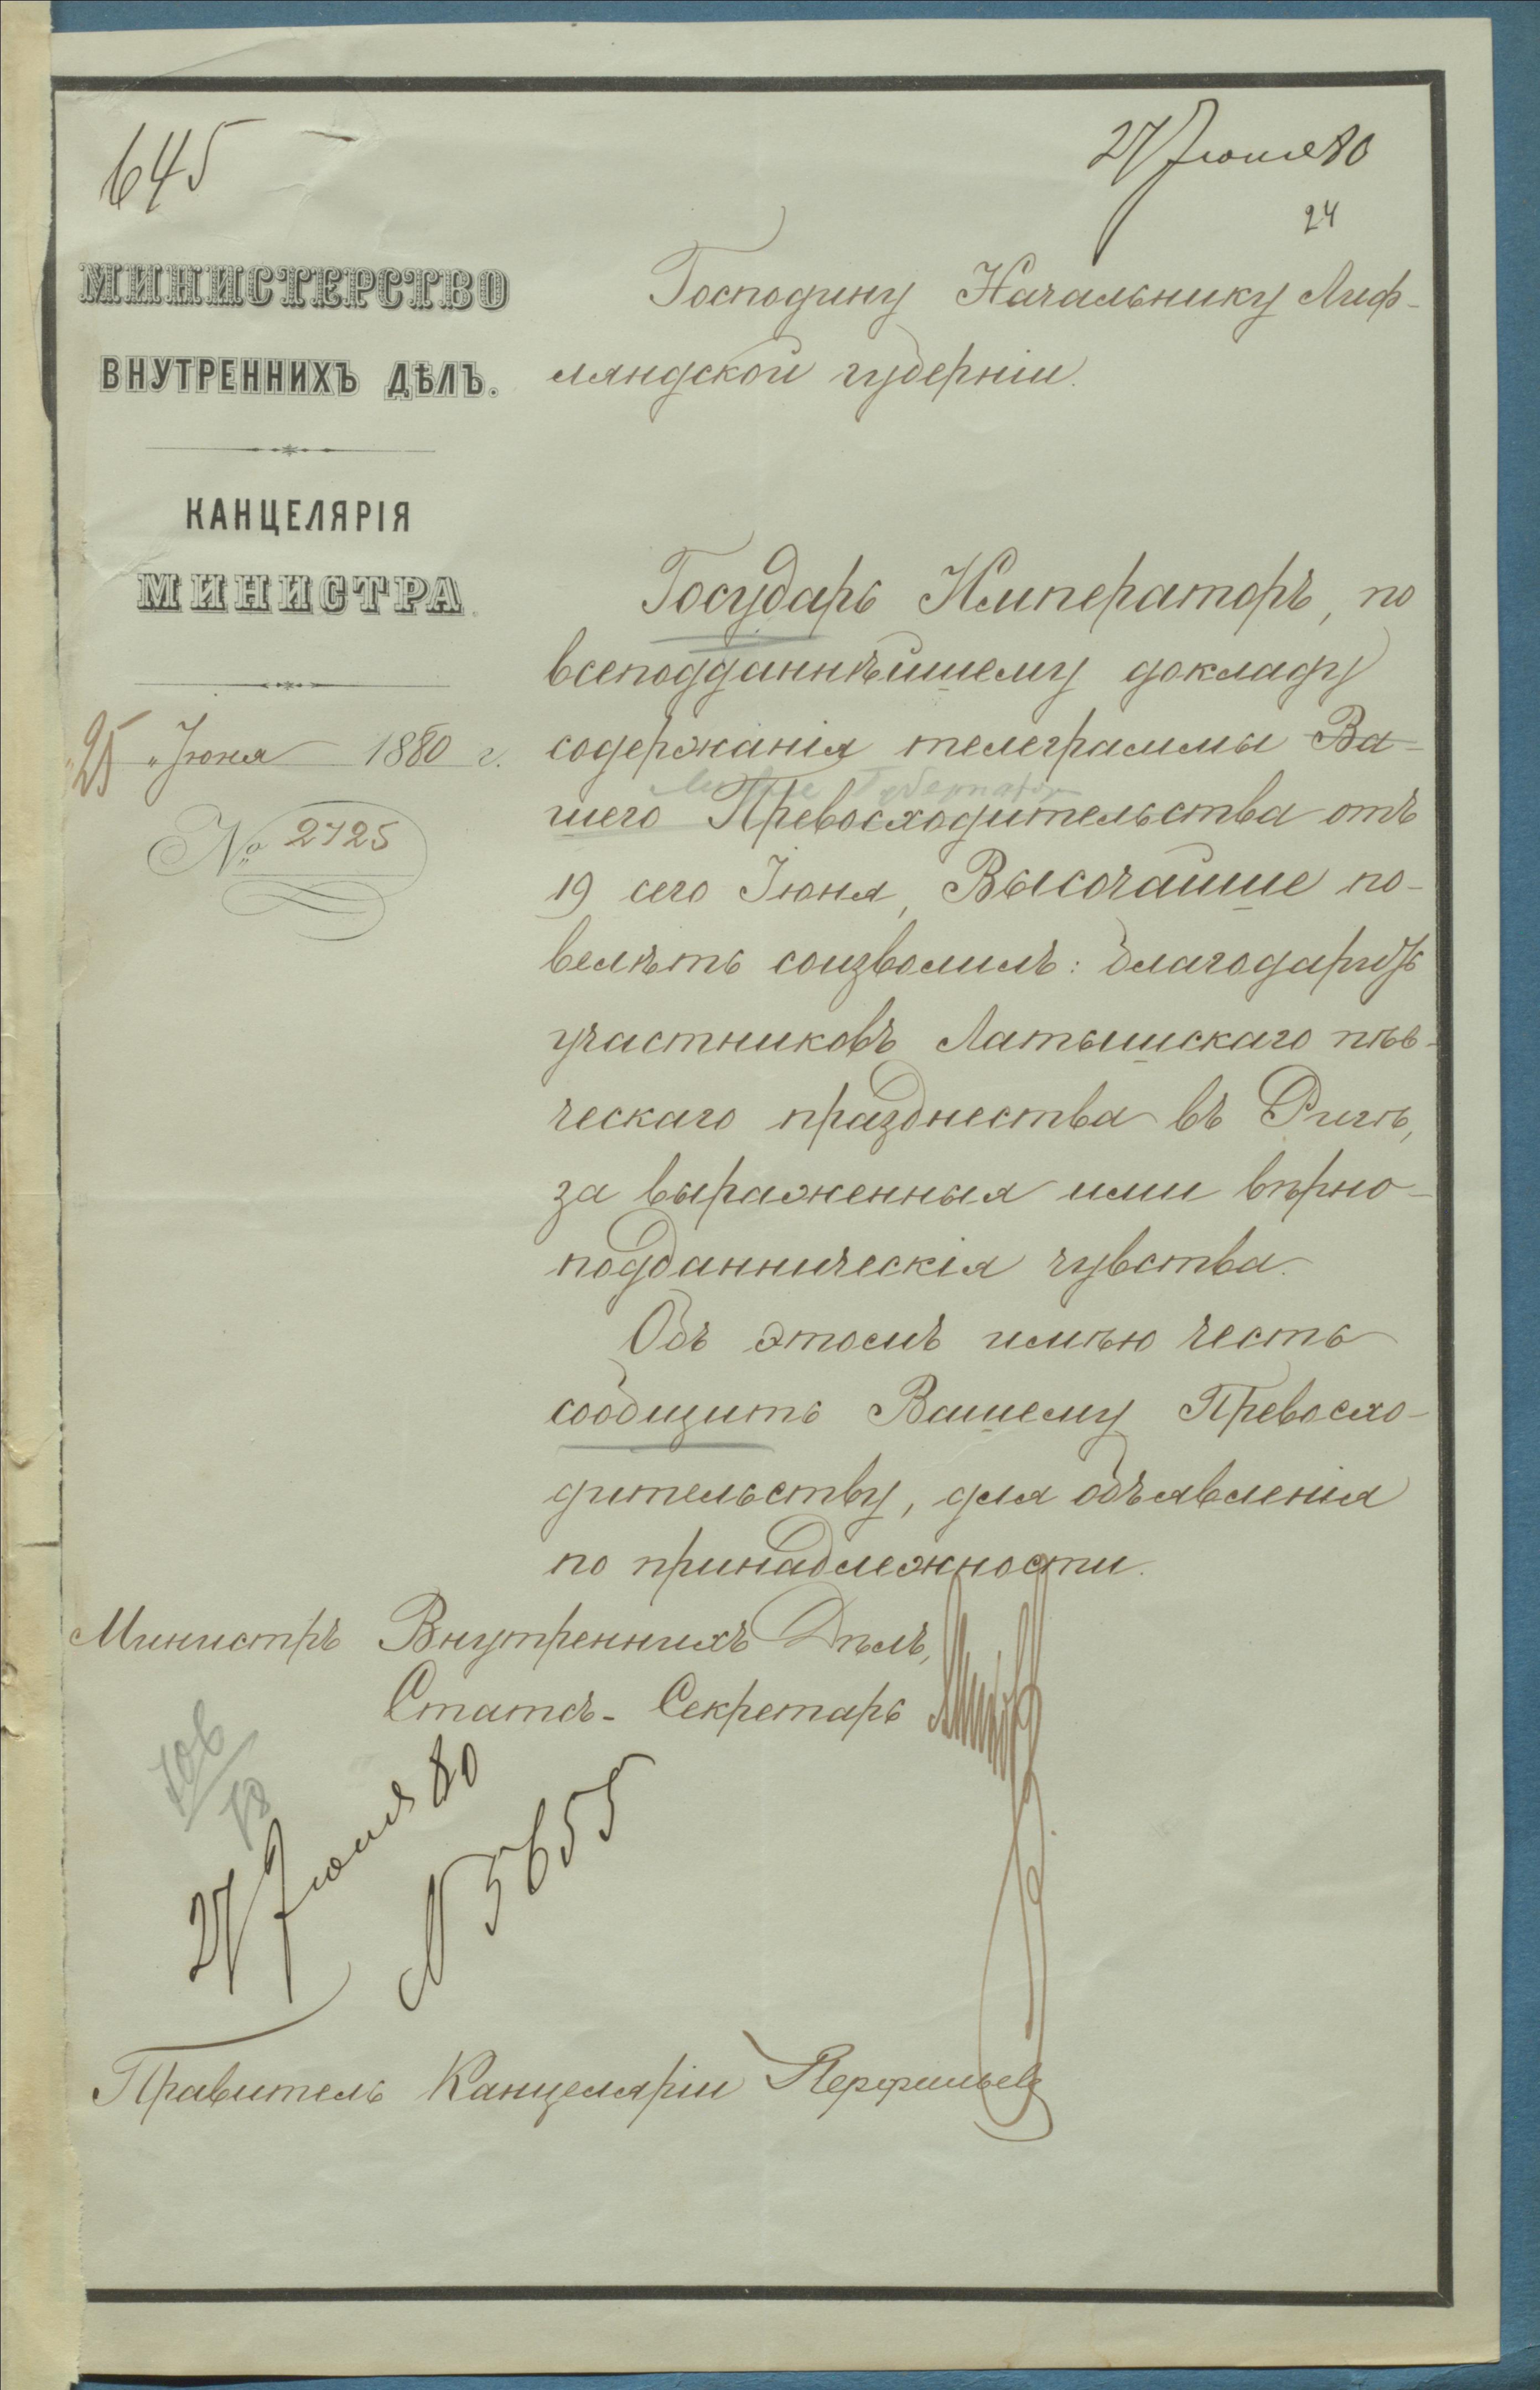 645
27 Іюня 80
24
МИНИСТЕРСТВО
ВНУТРЕННИХЪ ДѢЛЪ.
КАНЦЕЛЯРІЯ
МИНИСТРА.
25 „ Іюня 1880 г.
№ 2725
Господину Начальнику Лиф-
ляндской губерніи.
Государь Императоръ, по
всеподданнѣйшему докладу
содержанія телеграммы Ва-
Губернатора
шего Превосходительства отъ
19 сего Іюня, Высочайше по-
велѣть соизволилъ: благодарить
участниковъ Латышскаго пѣв-
ческаго празднества въ Ригѣ,
за выраженныя ими вѣрно-
подданническія чувства.
Объ этомъ имѣю честь
сообщить Вашему Превосхо-
дительству, для объявленія
по принадлежности.
Министръ Внутреннихъ Дѣлъ,
Статсъ-Секретарь
27 Іюня 80
№ 5655
Правитель Канцеляріи Перфильевъ